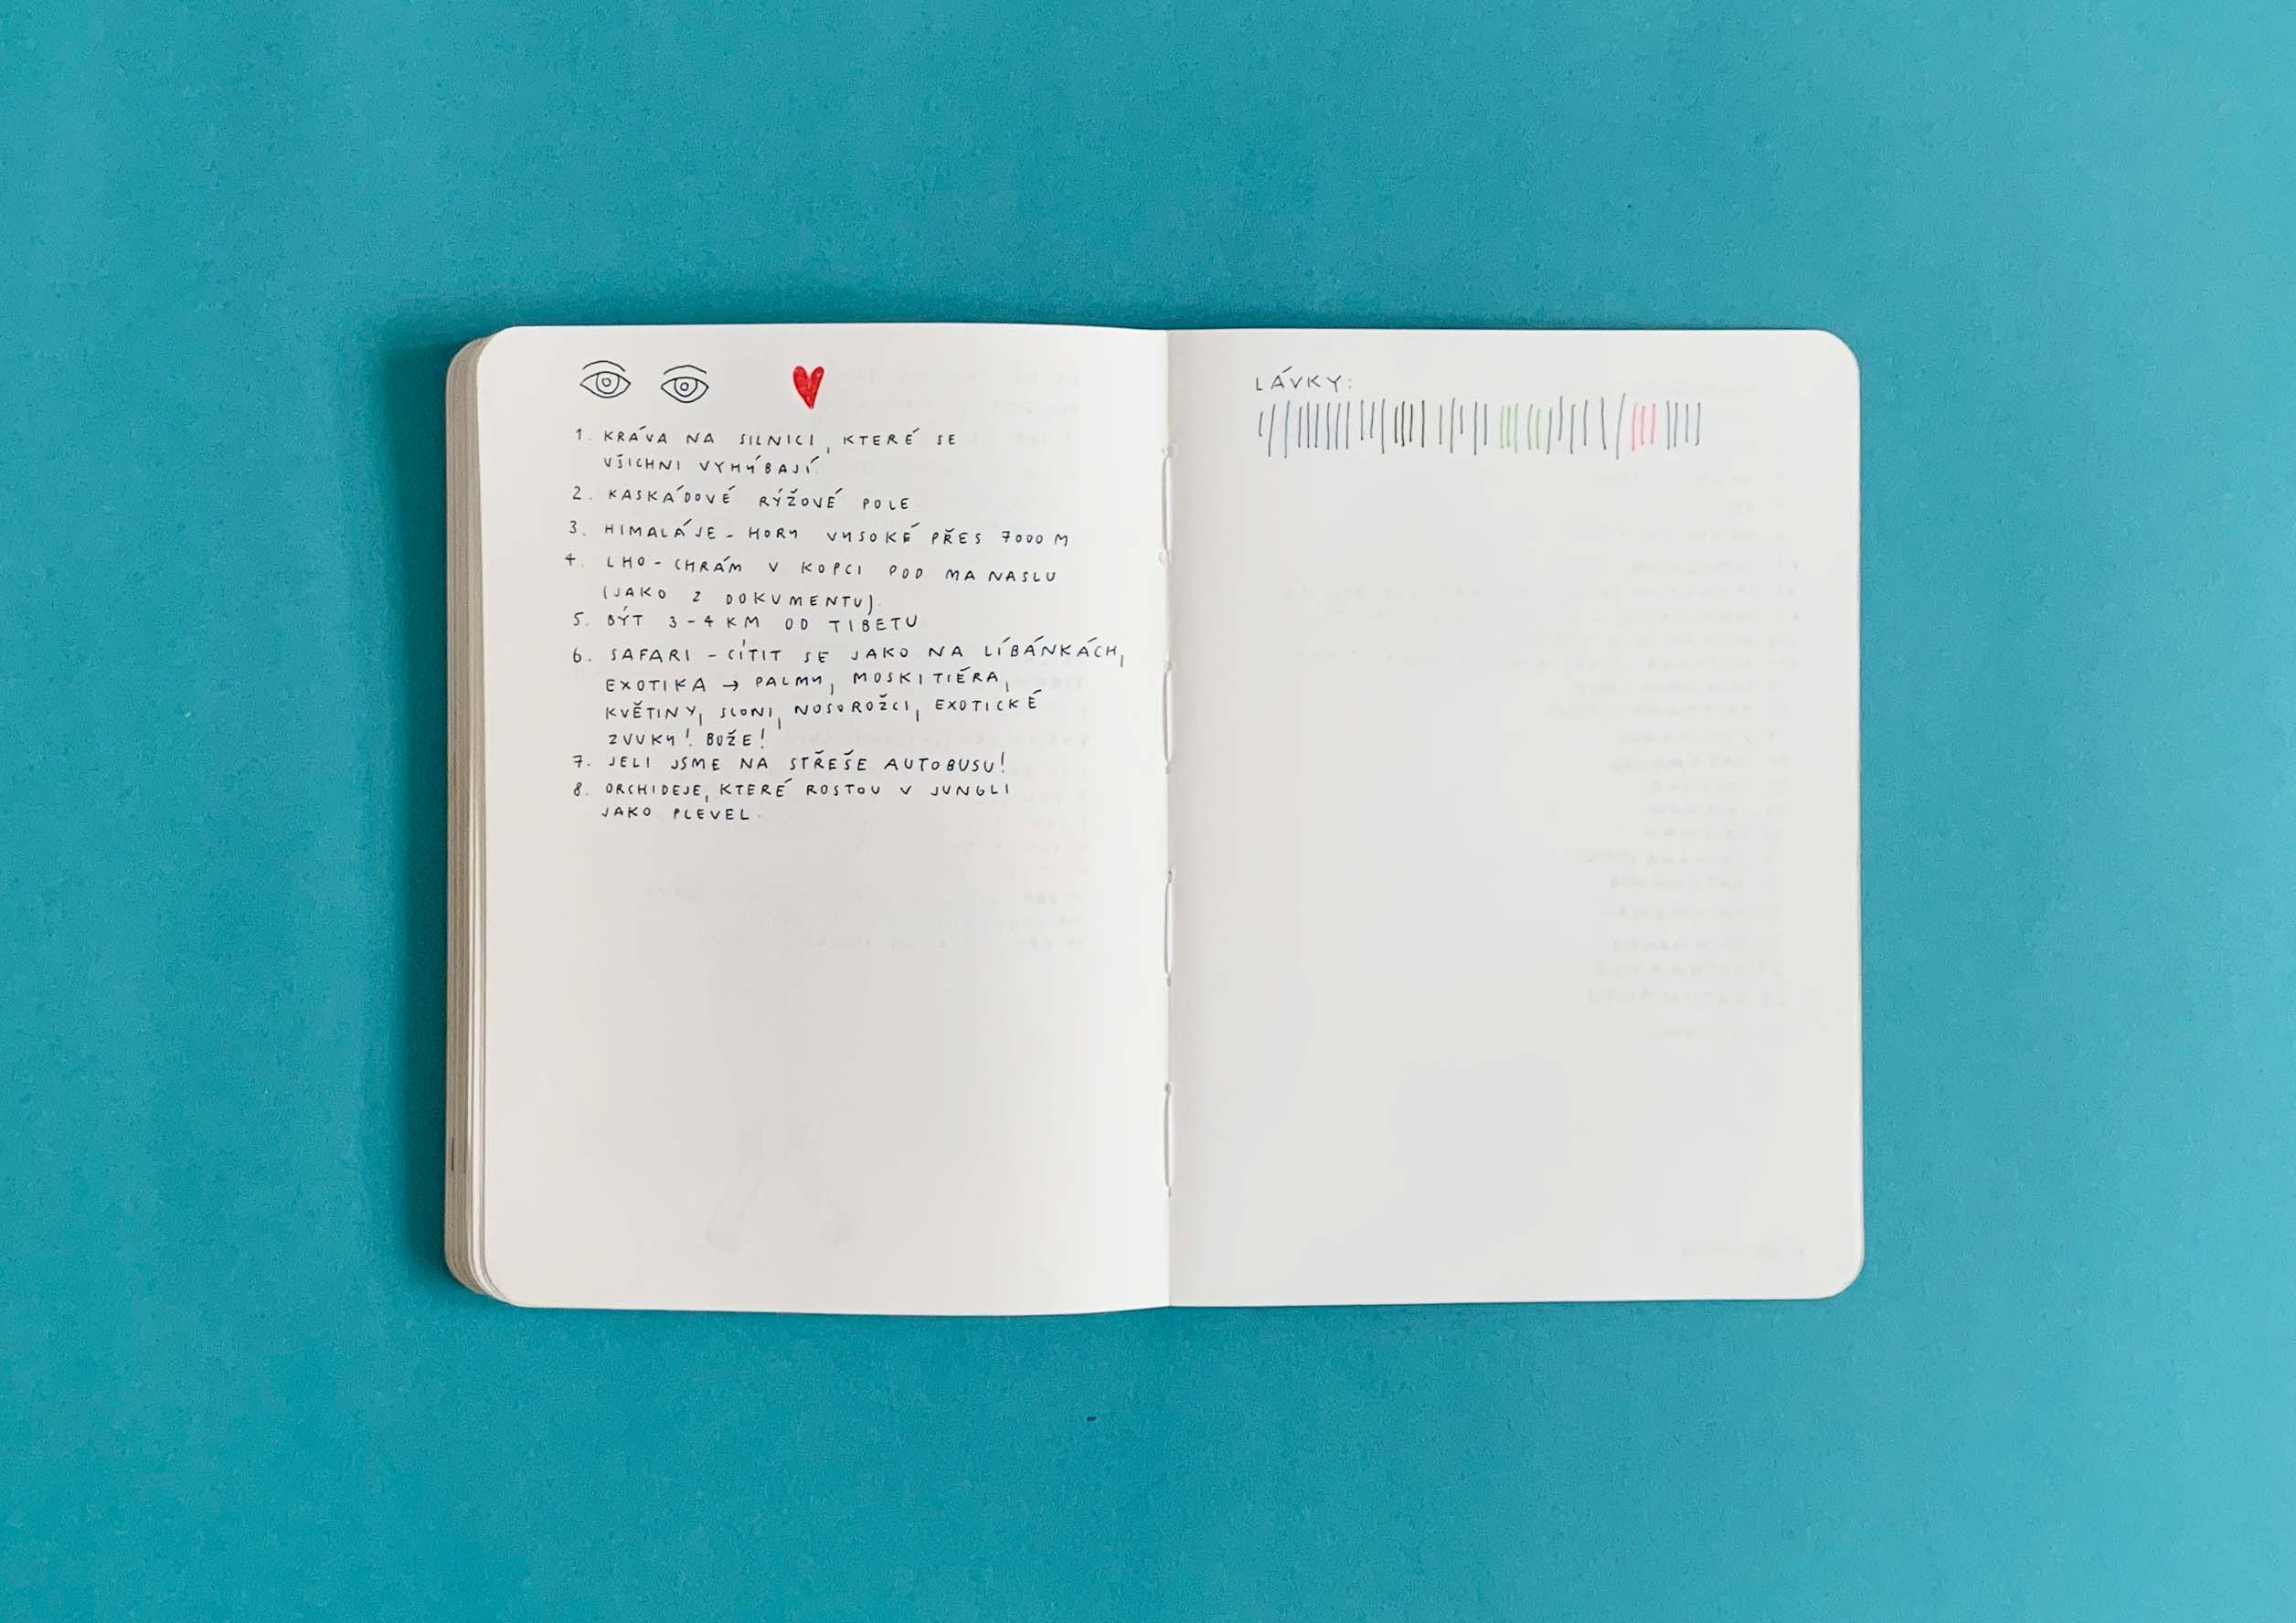 1. KRÁVA NA SILNICI, KTERÉ SE
VŠICHNI VYHÝBAJÍ.
2. KASKÁDOVÉ RÝŽOVÉ POLE
3. HIMALÁJE - HORY VYSOKÉ PŘES 7000 M
4. LHO - CHRÁM V KOPCI POD MANASLU
(JAKO Z DOKUMENTU).
5. BÝT 3-4 KM OD TIBETU
6. SAFARI - CÍTIT SE JAKO NA LÍBÁNKÁCH,
EXOTIKA → PALMY, MOSKITIÉRA,
KVĚTINY, SLONI, NOSOROŽCI, EXOTICKÉ
ZVUKY! BOŽE!
7. JELI JSME NA STŘEŠE AUTOBUSU!
8. ORCHIDEJE, KTERÉ ROSTOU V JUNGLI
JAKO PLEVEL.
LÁVKY: